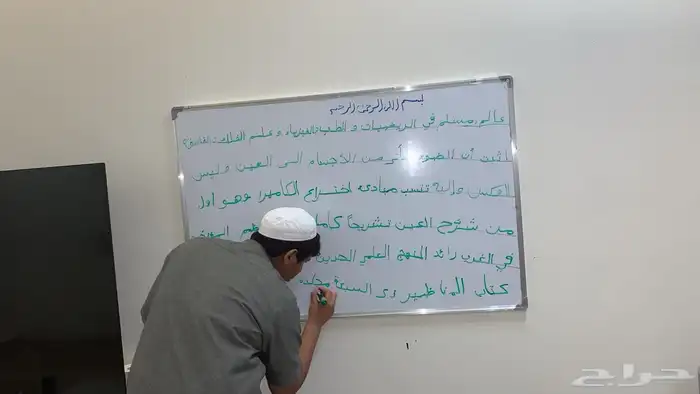 بسم الله الرحمن الرحيم
عالم مسلم في الرياضيات والطب والفيزياء وعلم الفلك
اثبت أن الضوء يأتي من الأجسام الى العين وليس
العكس وإليه تنسب مبادئ اختراع الكاميرا وهو اول
من شرّح العين تشريحاً كاملاً
في الغرب رائد المنهج العلمي الحديث
كتاب المناظير ذي السبعة مجلد
حراج